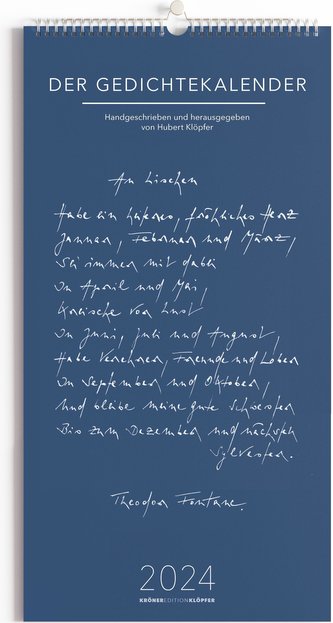 DER GEDICHTEKALENDER
Handgeschrieben und herausgegeben
von Hubert Klöpfer
An Lischen
Habe ein heiteres, fröhliches Herz
Januar, Februar und März,
Sei immer mit dabei
In April und Mai,
Kreische vor Lust
In Juni, Juli und August,
Habe Verehrer, Freunde und Lober
In September und Oktober,
und bleibe meine gute Schwester
Bis zum Dezember und nächsten
Sylvester.
Theodor Fontane.
2024
KRÖNEREDITIONKLÖPFER